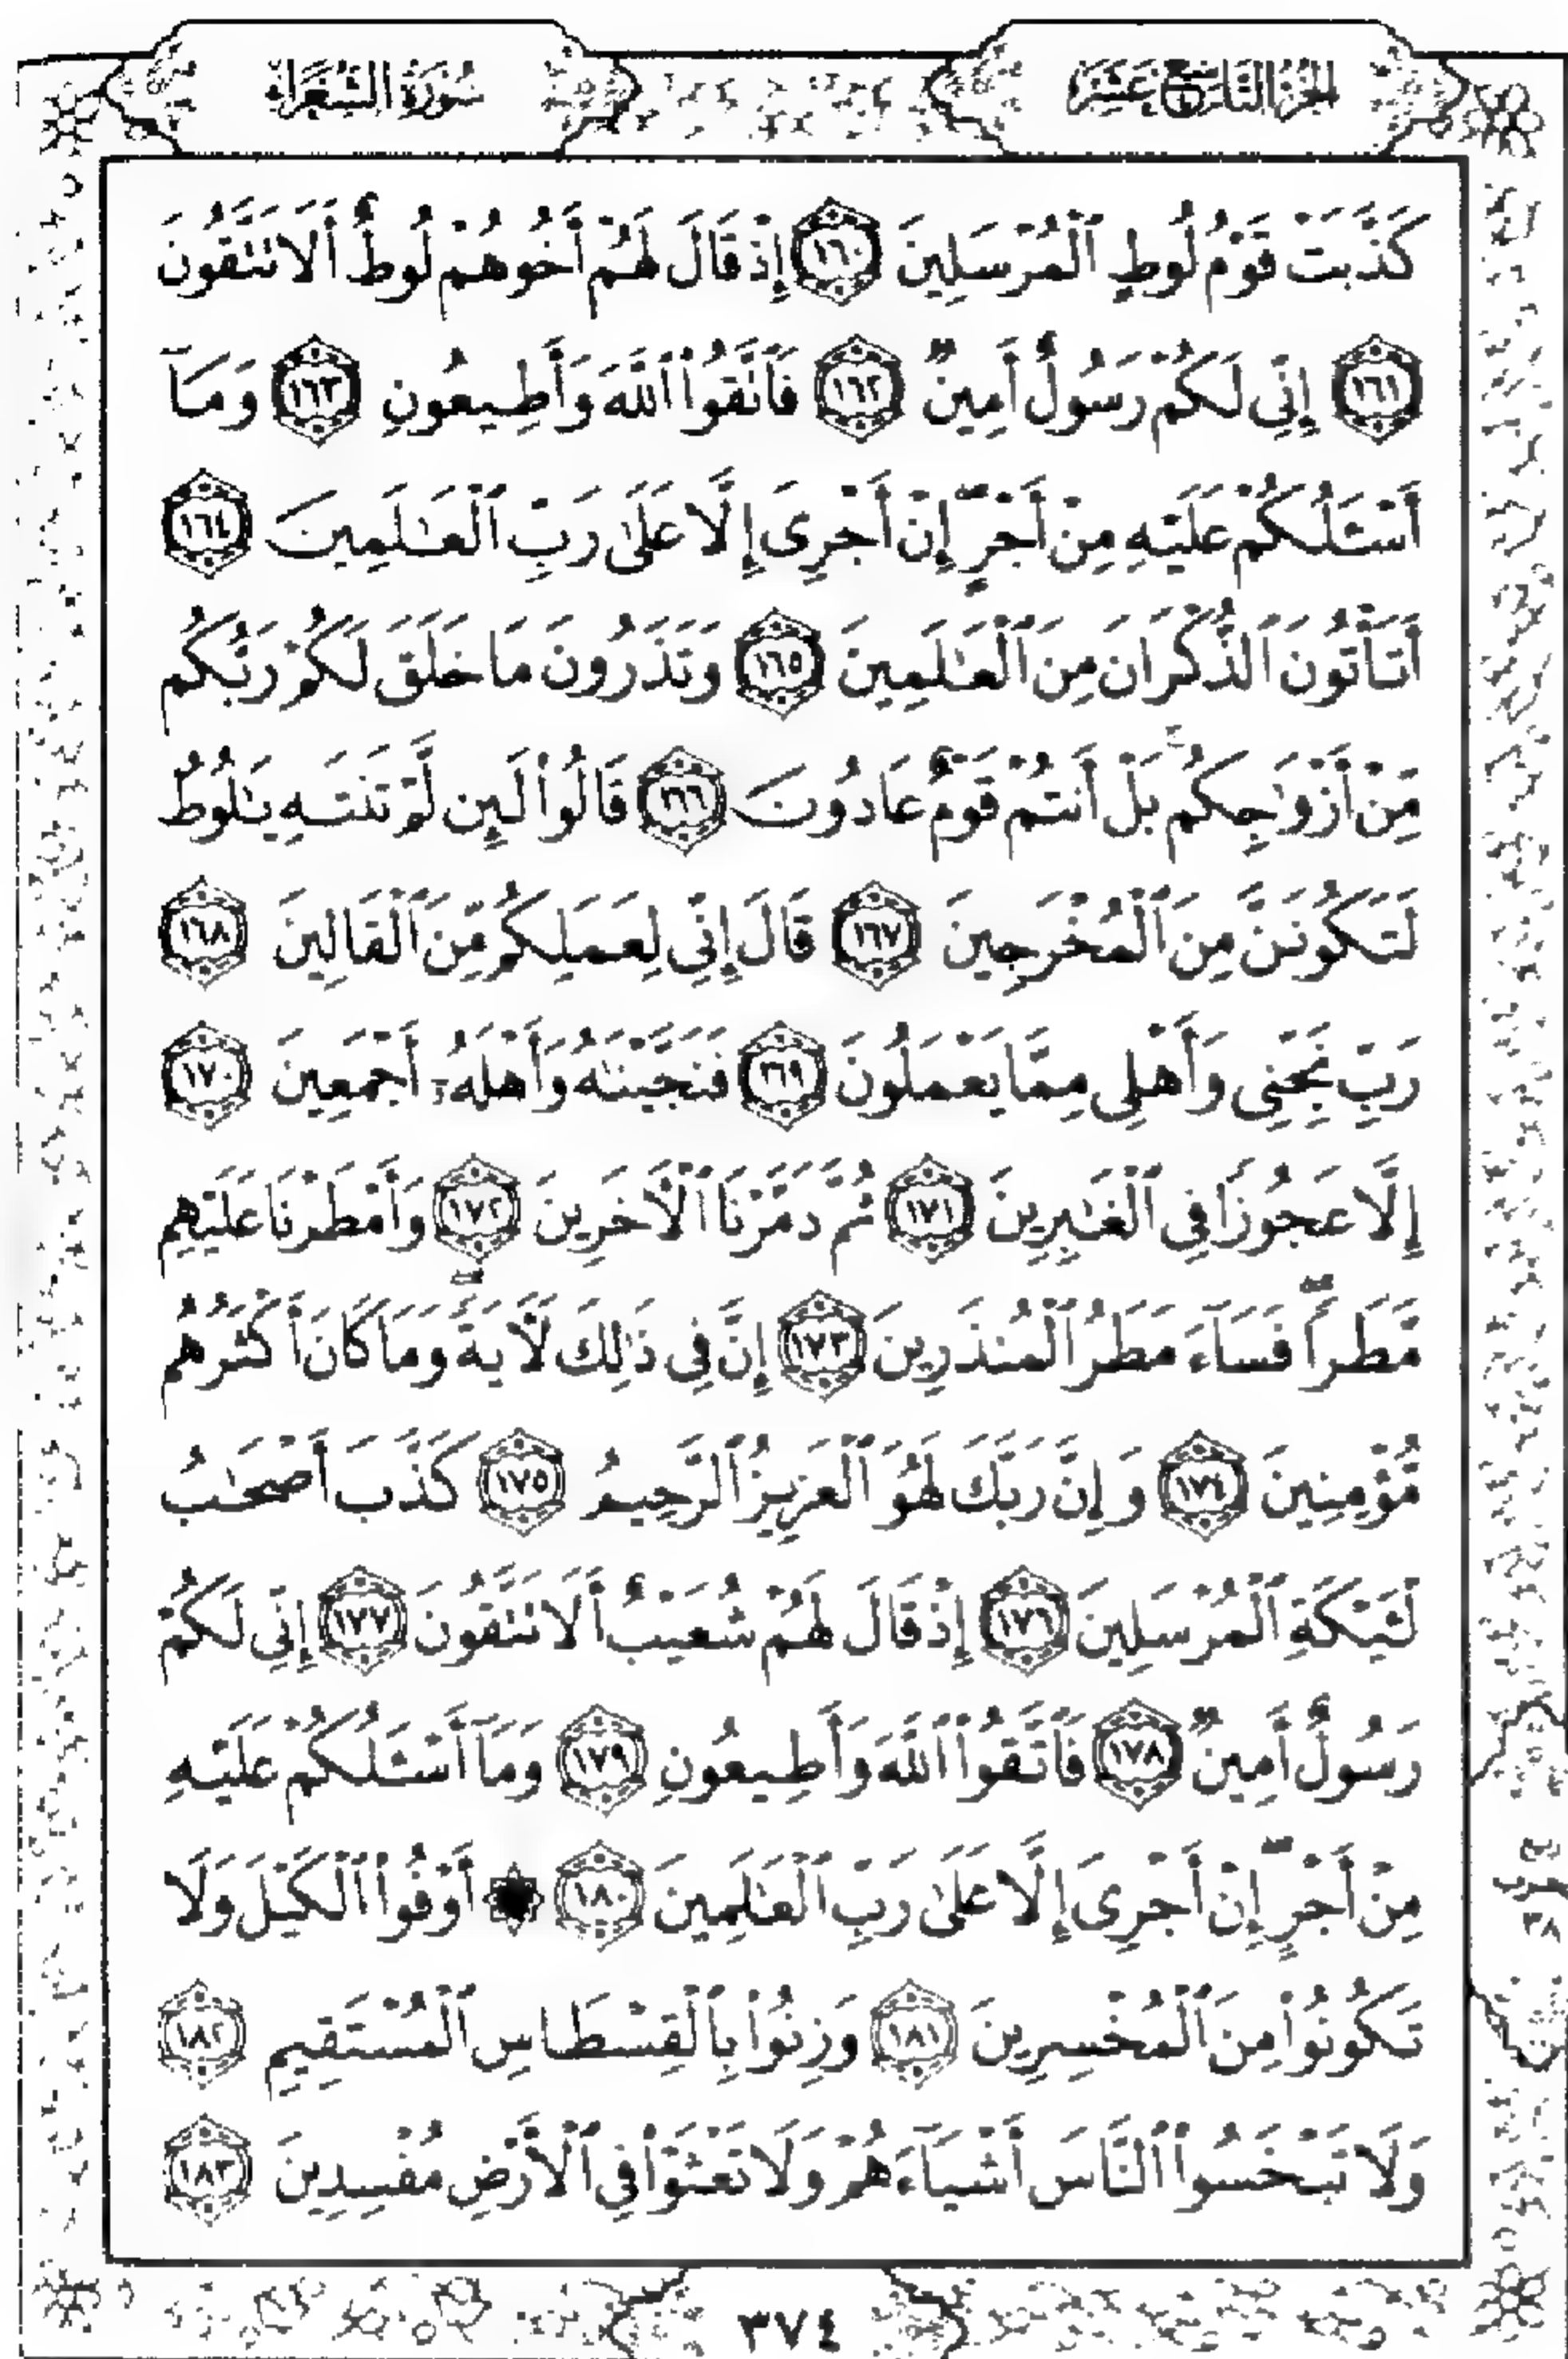 الجزء التاسع عشر
سورة الشعراء
كَذَّبَتْ قَوْمُ لُوطٍ ٱلْمُرْسَلِينَ ١٦٠ إِذْ قَالَ لَهُمْ أَخُوهُمْ لُوطٌ أَلَا تَتَّقُونَ
١٦١ إِنِّي لَكُمْ رَسُولٌ أَمِينٌ ١٦٢ فَٱتَّقُوا۟ ٱللَّهَ وَأَطِيعُونِ ١٦٣ وَمَآ
أَسْـَٔلُكُمْ عَلَيْهِ مِنْ أَجْرٍ ۖ إِنْ أَجْرِىَ إِلَّا عَلَىٰ رَبِّ ٱلْعَـٰلَمِينَ ١٦٤
أَتَأْتُونَ ٱلذُّكْرَانَ مِنَ ٱلْعَـٰلَمِينَ ١٦٥ وَتَذَرُونَ مَا خَلَقَ لَكُمْ رَبُّكُم
مِّنْ أَزْوَٰجِكُم ۚ بَلْ أَنتُمْ قَوْمٌ عَادُونَ ١٦٦ قَالُوا۟ لَئِن لَّمْ تَنتَهِ يَـٰلُوطُ
لَتَكُونَنَّ مِنَ ٱلْمُخْرَجِينَ ١٦٧ قَالَ إِنِّى لِعَمَلِكُم مِّنَ ٱلْقَالِينَ ١٦٨
رَبِّ نَجِّنِى وَأَهْلِى مِمَّا يَعْمَلُونَ ١٦٩ فَنَجَّيْنَـٰهُ وَأَهْلَهُۥٓ أَجْمَعِينَ ١٧٠
إِلَّا عَجُوزًا فِى ٱلْغَـٰبِرِينَ ١٧١ ثُمَّ دَمَّرْنَا ٱلْـَٔاخَرِينَ ١٧٢ وَأَمْطَرْنَا عَلَيْهِم
مَّطَرًا ۖ فَسَآءَ مَطَرُ ٱلْمُنذَرِينَ ١٧٣ إِنَّ فِى ذَٰلِكَ لَـَٔايَةً ۖ وَمَا كَانَ أَكْثَرُهُم
مُّؤْمِنِينَ ١٧٤ وَإِنَّ رَبَّكَ لَهُوَ ٱلْعَزِيزُ ٱلرَّحِيمُ ١٧٥ كَذَّبَ أَصْحَـٰبُ
لْـَٔيْكَةِ ٱلْمُرْسَلِينَ ١٧٦ إِذْ قَالَ لَهُمْ شُعَيْبٌ أَلَا تَتَّقُونَ ١٧٧ إِنِّى لَكُمْ
رَسُولٌ أَمِينٌ ١٧٨ فَٱتَّقُوا۟ ٱللَّهَ وَأَطِيعُونِ ١٧٩ وَمَآ أَسْـَٔلُكُمْ عَلَيْهِ
مِنْ أَجْرٍ ۖ إِنْ أَجْرِىَ إِلَّا عَلَىٰ رَبِّ ٱلْعَـٰلَمِينَ ١٨٠ ۞ أَوْفُوا۟ ٱلْكَيْلَ وَلَا
تَكُونُوا۟ مِنَ ٱلْمُخْسِرِينَ ١٨١ وَزِنُوا۟ بِٱلْقِسْطَاسِ ٱلْمُسْتَقِيمِ ١٨٢
وَلَا تَبْخَسُوا۟ ٱلنَّاسَ أَشْيَآءَهُمْ وَلَا تَعْثَوْا۟ فِى ٱلْأَرْضِ مُفْسِدِينَ ١٨٣
٣٧٤